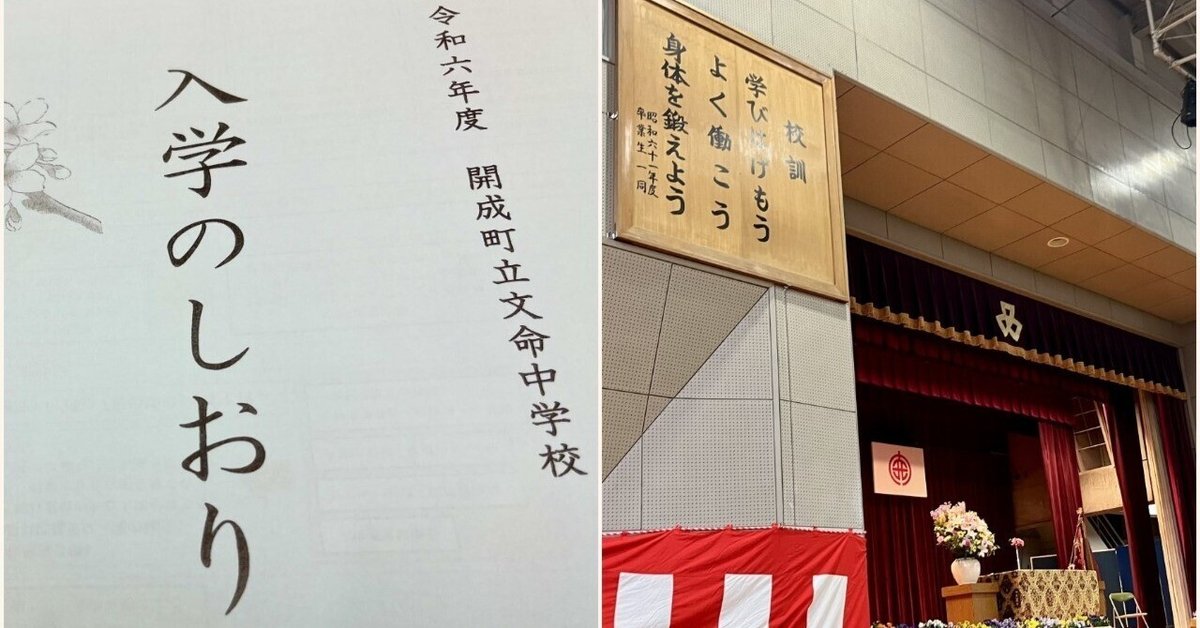 令和六年度 開成町立文命中学校
入学のしおり
校訓
学び続けもう
よく働こう
身体を鍛えよう
昭和六十一年度
卒業生一同